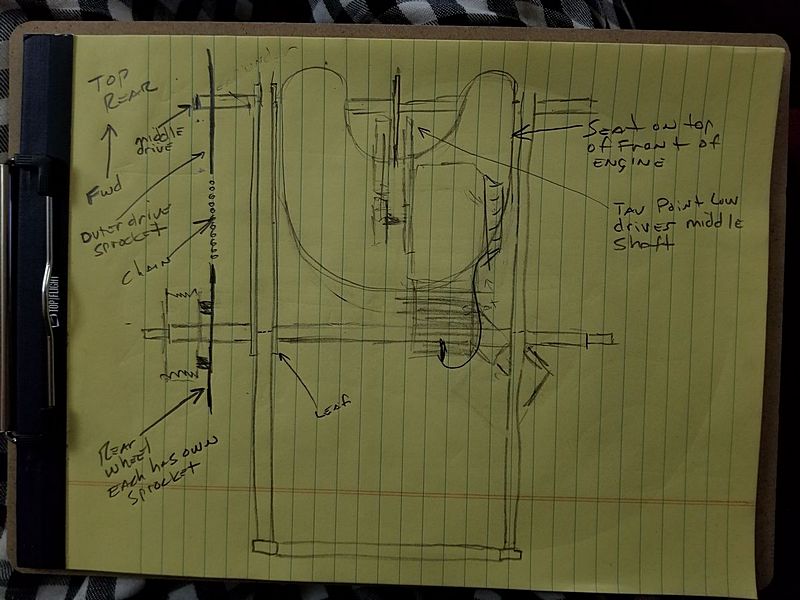 TOP
REAR
middle
drive
Fwd
Outer drive
sprocket
Chain
Rear
wheel
Each has own
sprocket
Leaf
Seat on top
of front of
ENGINE
Tav Point Low
drives middle
shaft
TOPFLIGHT